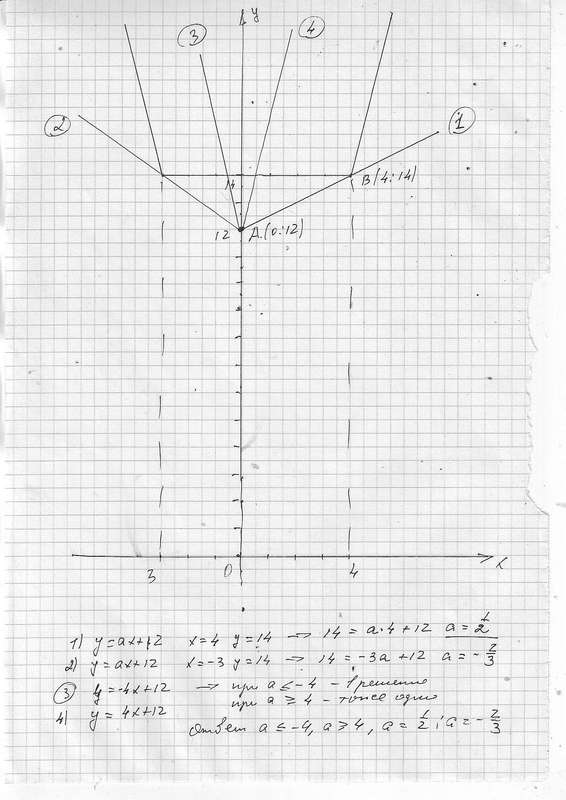 y
③
④
②
①
14
B(4;14)
12
A(0;12)
3
0
4
x
1) y=ax+12 x=4 y=14 → 14=a·4+12 a=1/2
2) y=ax+12 x=-3 y=14 → 14=-3a+12 a=-2/3
③ y=-4x+12 → при a≤-4 - 1 решение
при a≥4 - тоже одно
4) y=4x+12
ответ a≤-4, a≥4, a=1/2; a=-2/3